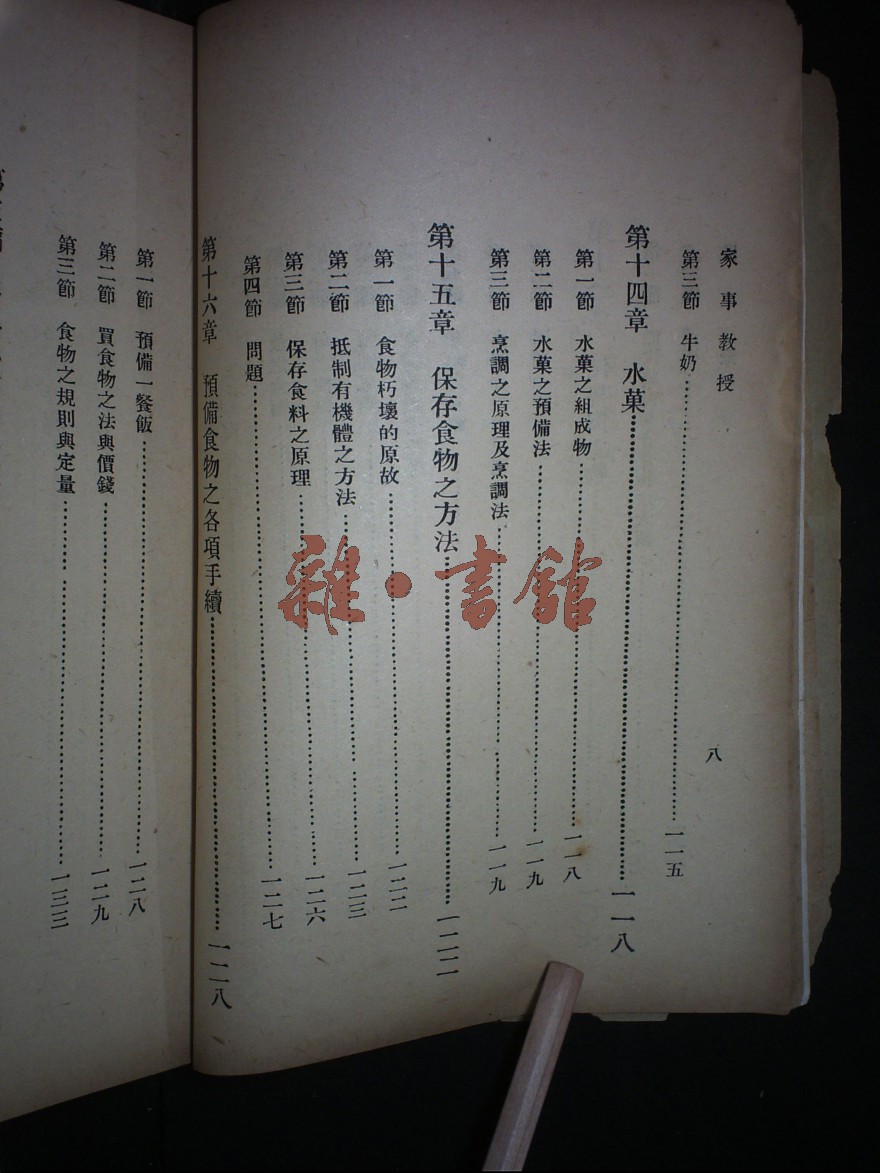 家事教授
八
第三節 牛奶……一一五
第十四章 水菓……一一八
第一節 水菓之組成物……一一八
第二節 水菓之預備法……一一九
第三節 烹調之原理及烹調法……一一九
第十五章 保存食物之方法……一二二
第一節 食物朽壞的原故……一二二
第二節 抵制有機體之方法……一二三
第三節 保存食料之原理……一二六
第四節 問題……一二七
第十六章 預備食物之各項手續……一二八
第一節 預備一餐飯……一二八
第二節 買食物之法與價錢……一二九
第三節 食物之規則與定量……一三三
雜·書館